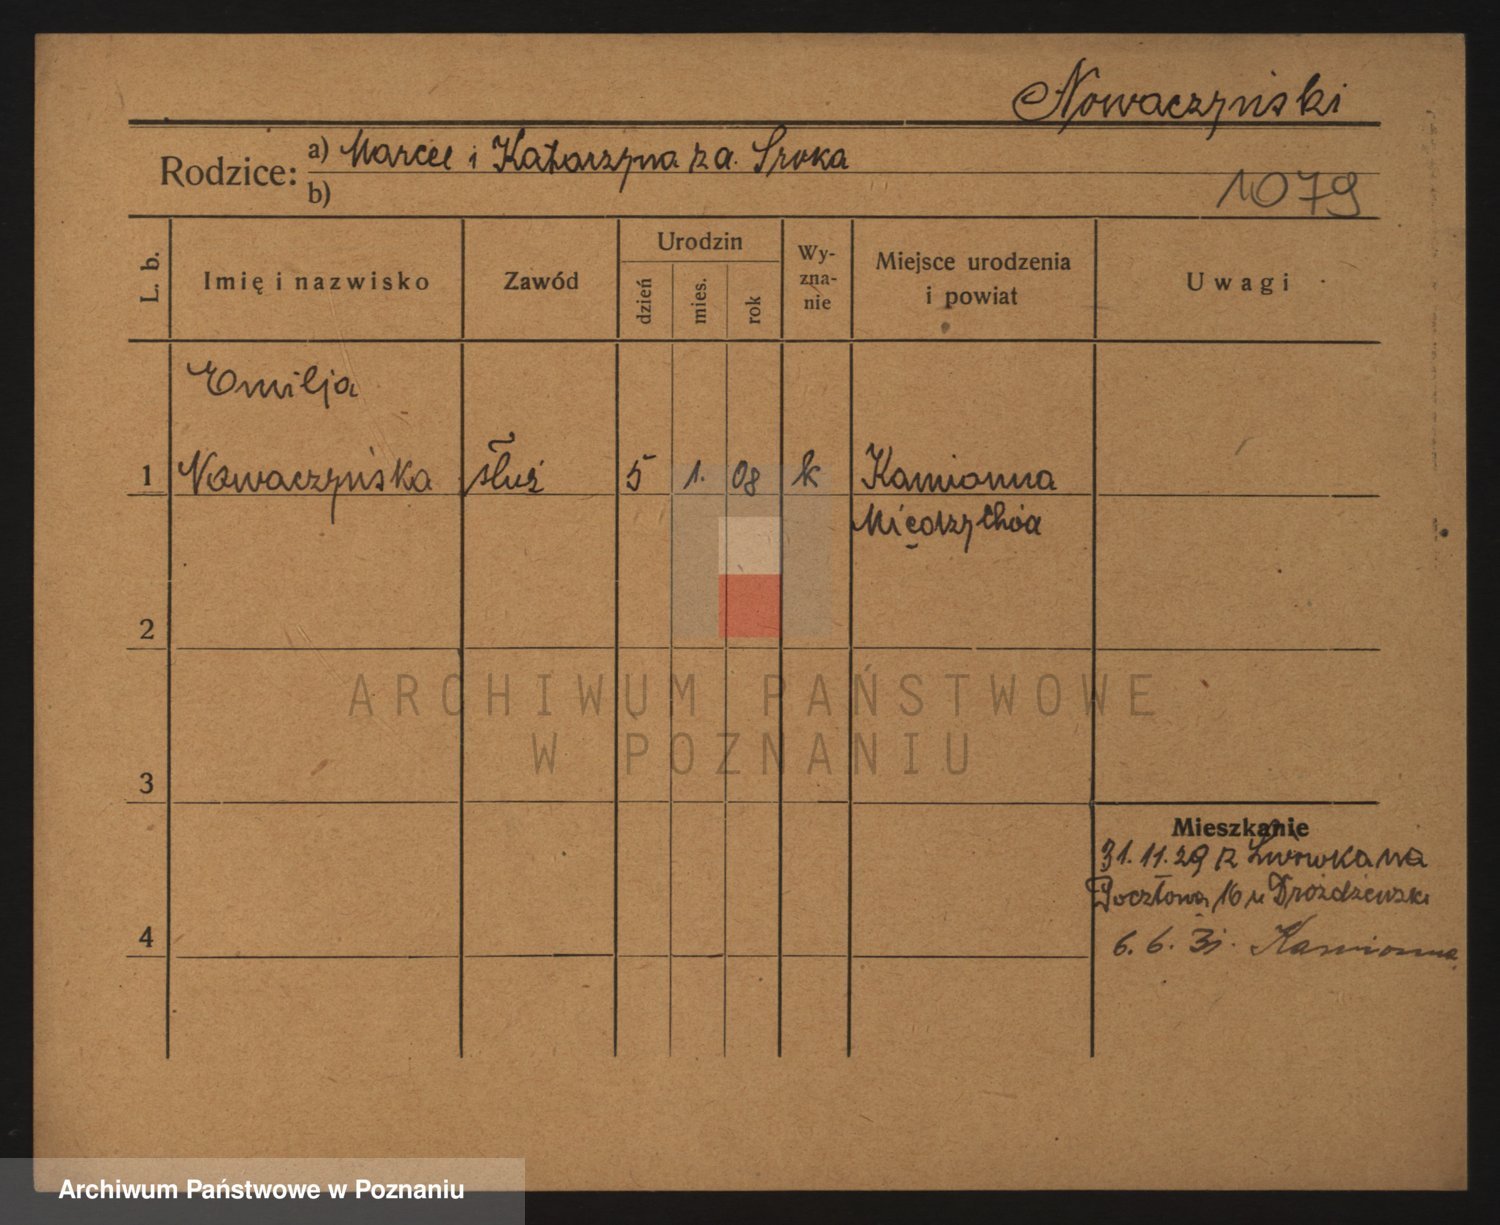 Nowaczyński
Rodzice: a) Marcel i Katarzyna za. Sroka
b)
1079
L. b.
Imię i nazwisko
Zawód
Urodzin
dzień
mies.
rok
Wy-
zna-
nie
Miejsce urodzenia
i powiat
Uwagi
Emilja
1 Nowaczyńska służ 5 1. 08 k Kamionna
Międzychód
2
ARCHIWUM PAŃSTWOWE
W POZNANIU
3
Mieszkanie
31.11.29 z Lwówka na
Pocztowa 16 u Drożdżewski
4
6.6.31. Kamionna
Archiwum Państwowe w Poznaniu